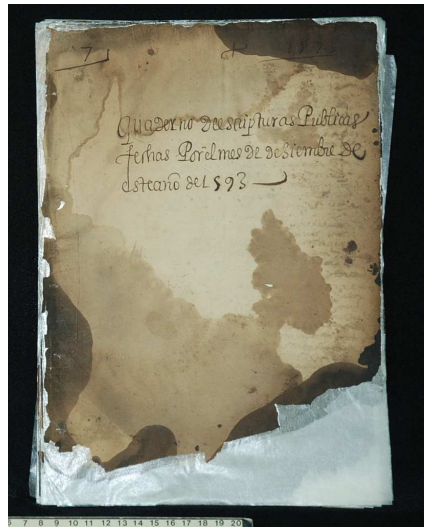 7
Quaderno de escripturas Publicas
fechas Por el mes de desiembre de
este año de 1593
7 8 9 10 11 12 13 14 15 16 17 18 19 20